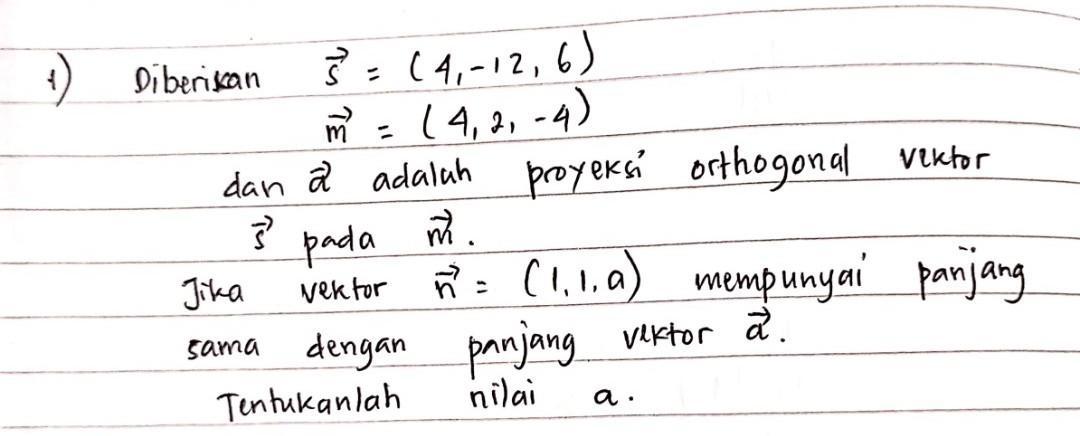 1) Diberikan s⃗ = (4,-12, 6)
m⃗ = (4, 2, -4)
dan a⃗ adalah proyeksi orthogonal vektor
s⃗ pada m⃗.
Jika vektor n⃗ = (1, 1, a) mempunyai panjang
sama dengan panjang vektor a⃗.
Tentukanlah nilai a.